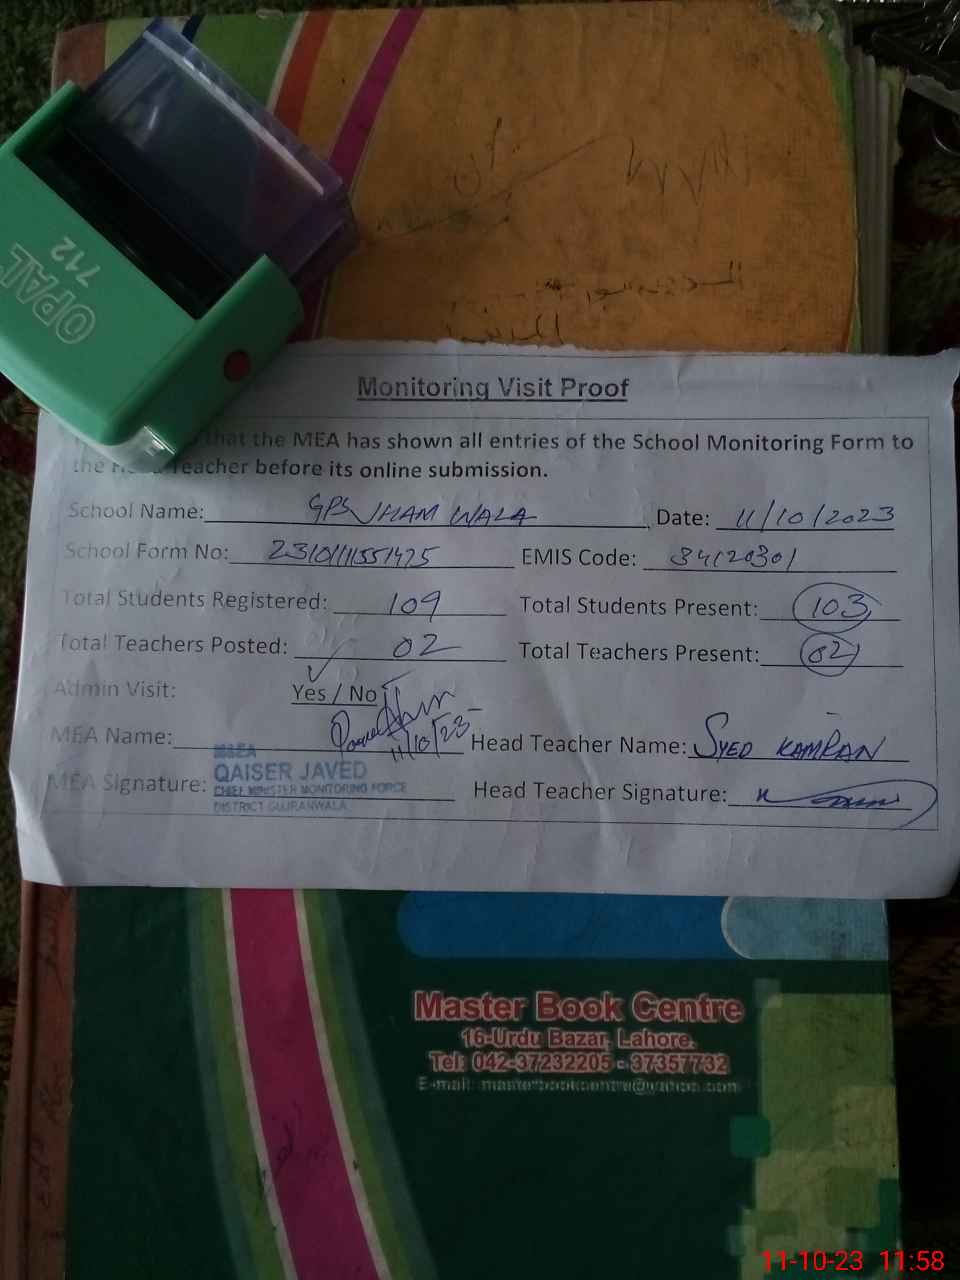 OPAL
712
Monitoring Visit Proof
that the MEA has shown all entries of the School Monitoring Form to
the Head Teacher before its online submission.
School Name: GPS JHAM WALA Date: 11/10/2023
School Form No: EMIS Code: 34120301
Total Students Registered: 109 Total Students Present: 103
Total Teachers Posted: 02 Total Teachers Present: 02
Admin Visit: Yes / No
11/10/23
MEA Name: Head Teacher Name: SYED KAMRAN
MEA Signature: Head Teacher Signature:
M&EA
QAISER JAVED
CHIEF MINISTER MONITORING FORCE
DISTRICT GUJRANWALA
Master Book Centre
16-Urdu Bazar, Lahore.
Tel: 042-37232205 - 37357732
E-mail: masterbookcentre@yahoo.com
11-10-23 11:58